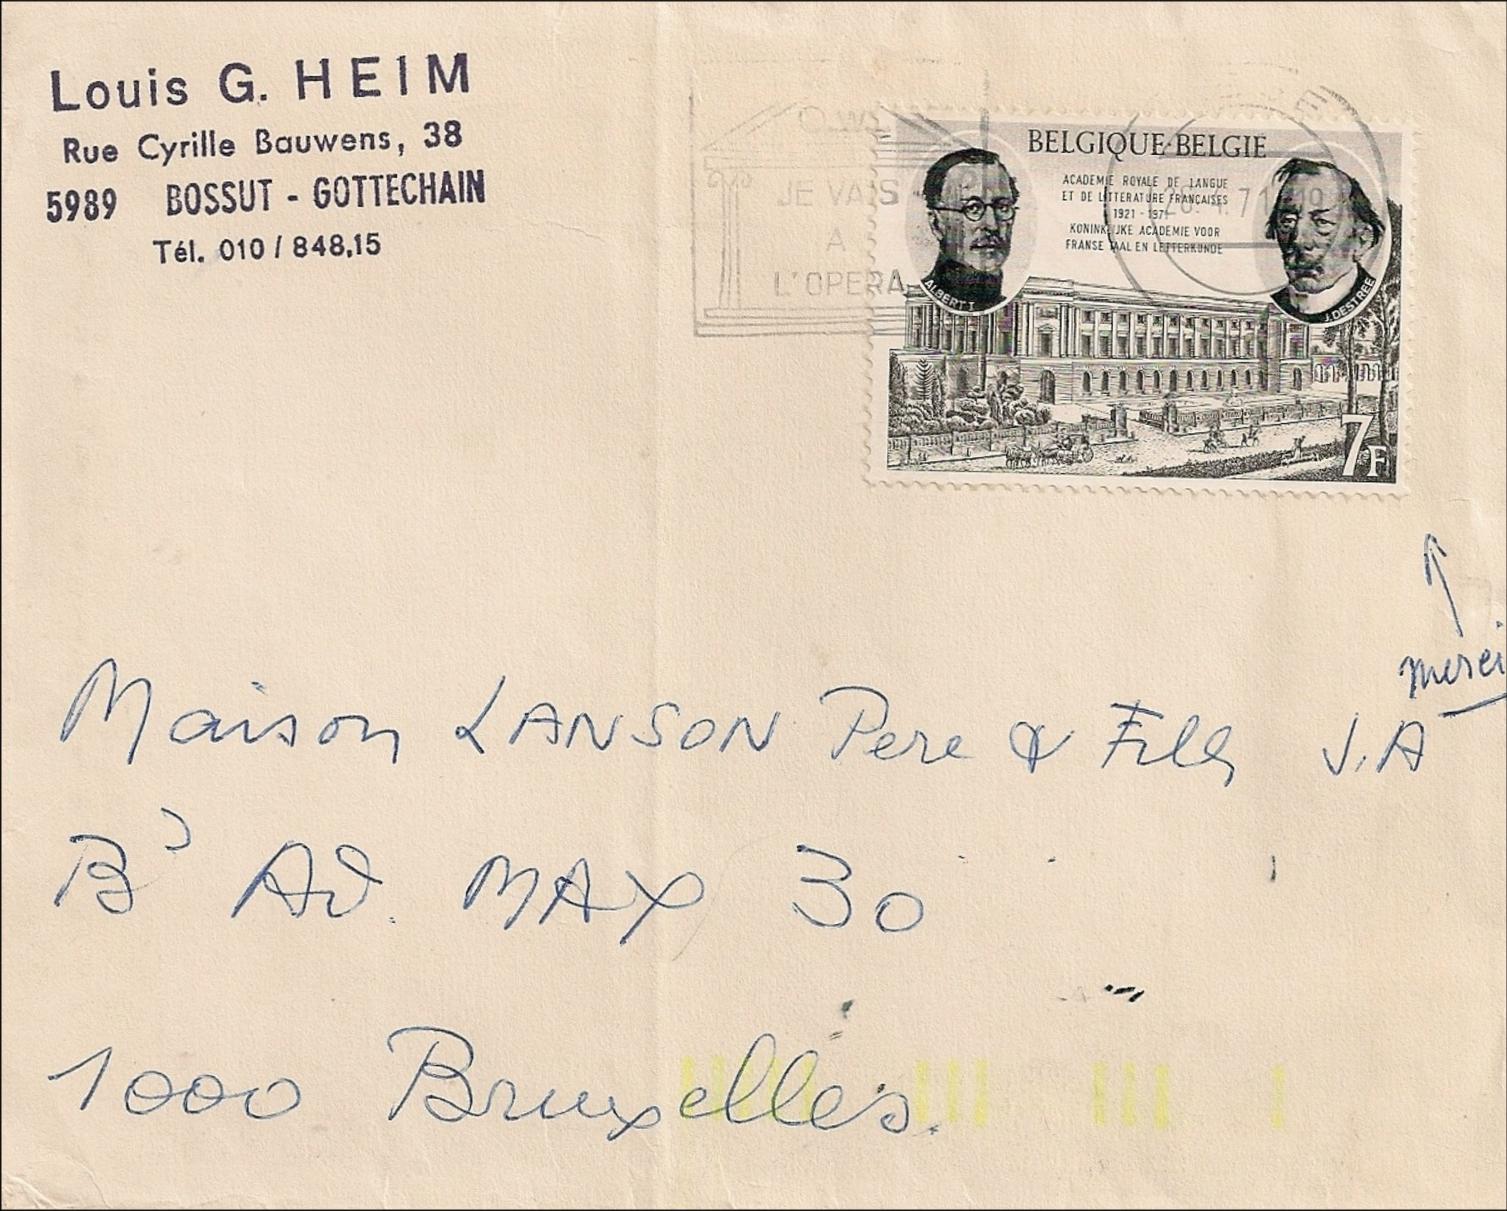 Louis G. HEIM
Rue Cyrille Bauwens, 38
5989 BOSSUT - GOTTECHAIN
Tél. 010 / 848.15
JE VAIS
A
L'OPERA
BELGIQUE·BELGIE
ACADEMIE ROYALE DE LANGUE
ET DE LITTERATURE FRANÇAISES
1921 - 1971
KONINKLIJKE ACADEMIE VOOR
FRANSE TAAL EN LETTERKUNDE
ALBERT I
J. DESTREE
7F
merci
Maison LANSON Pere & Fils S.A
Bd Ad. MAX 30
1000 Bruxelles.